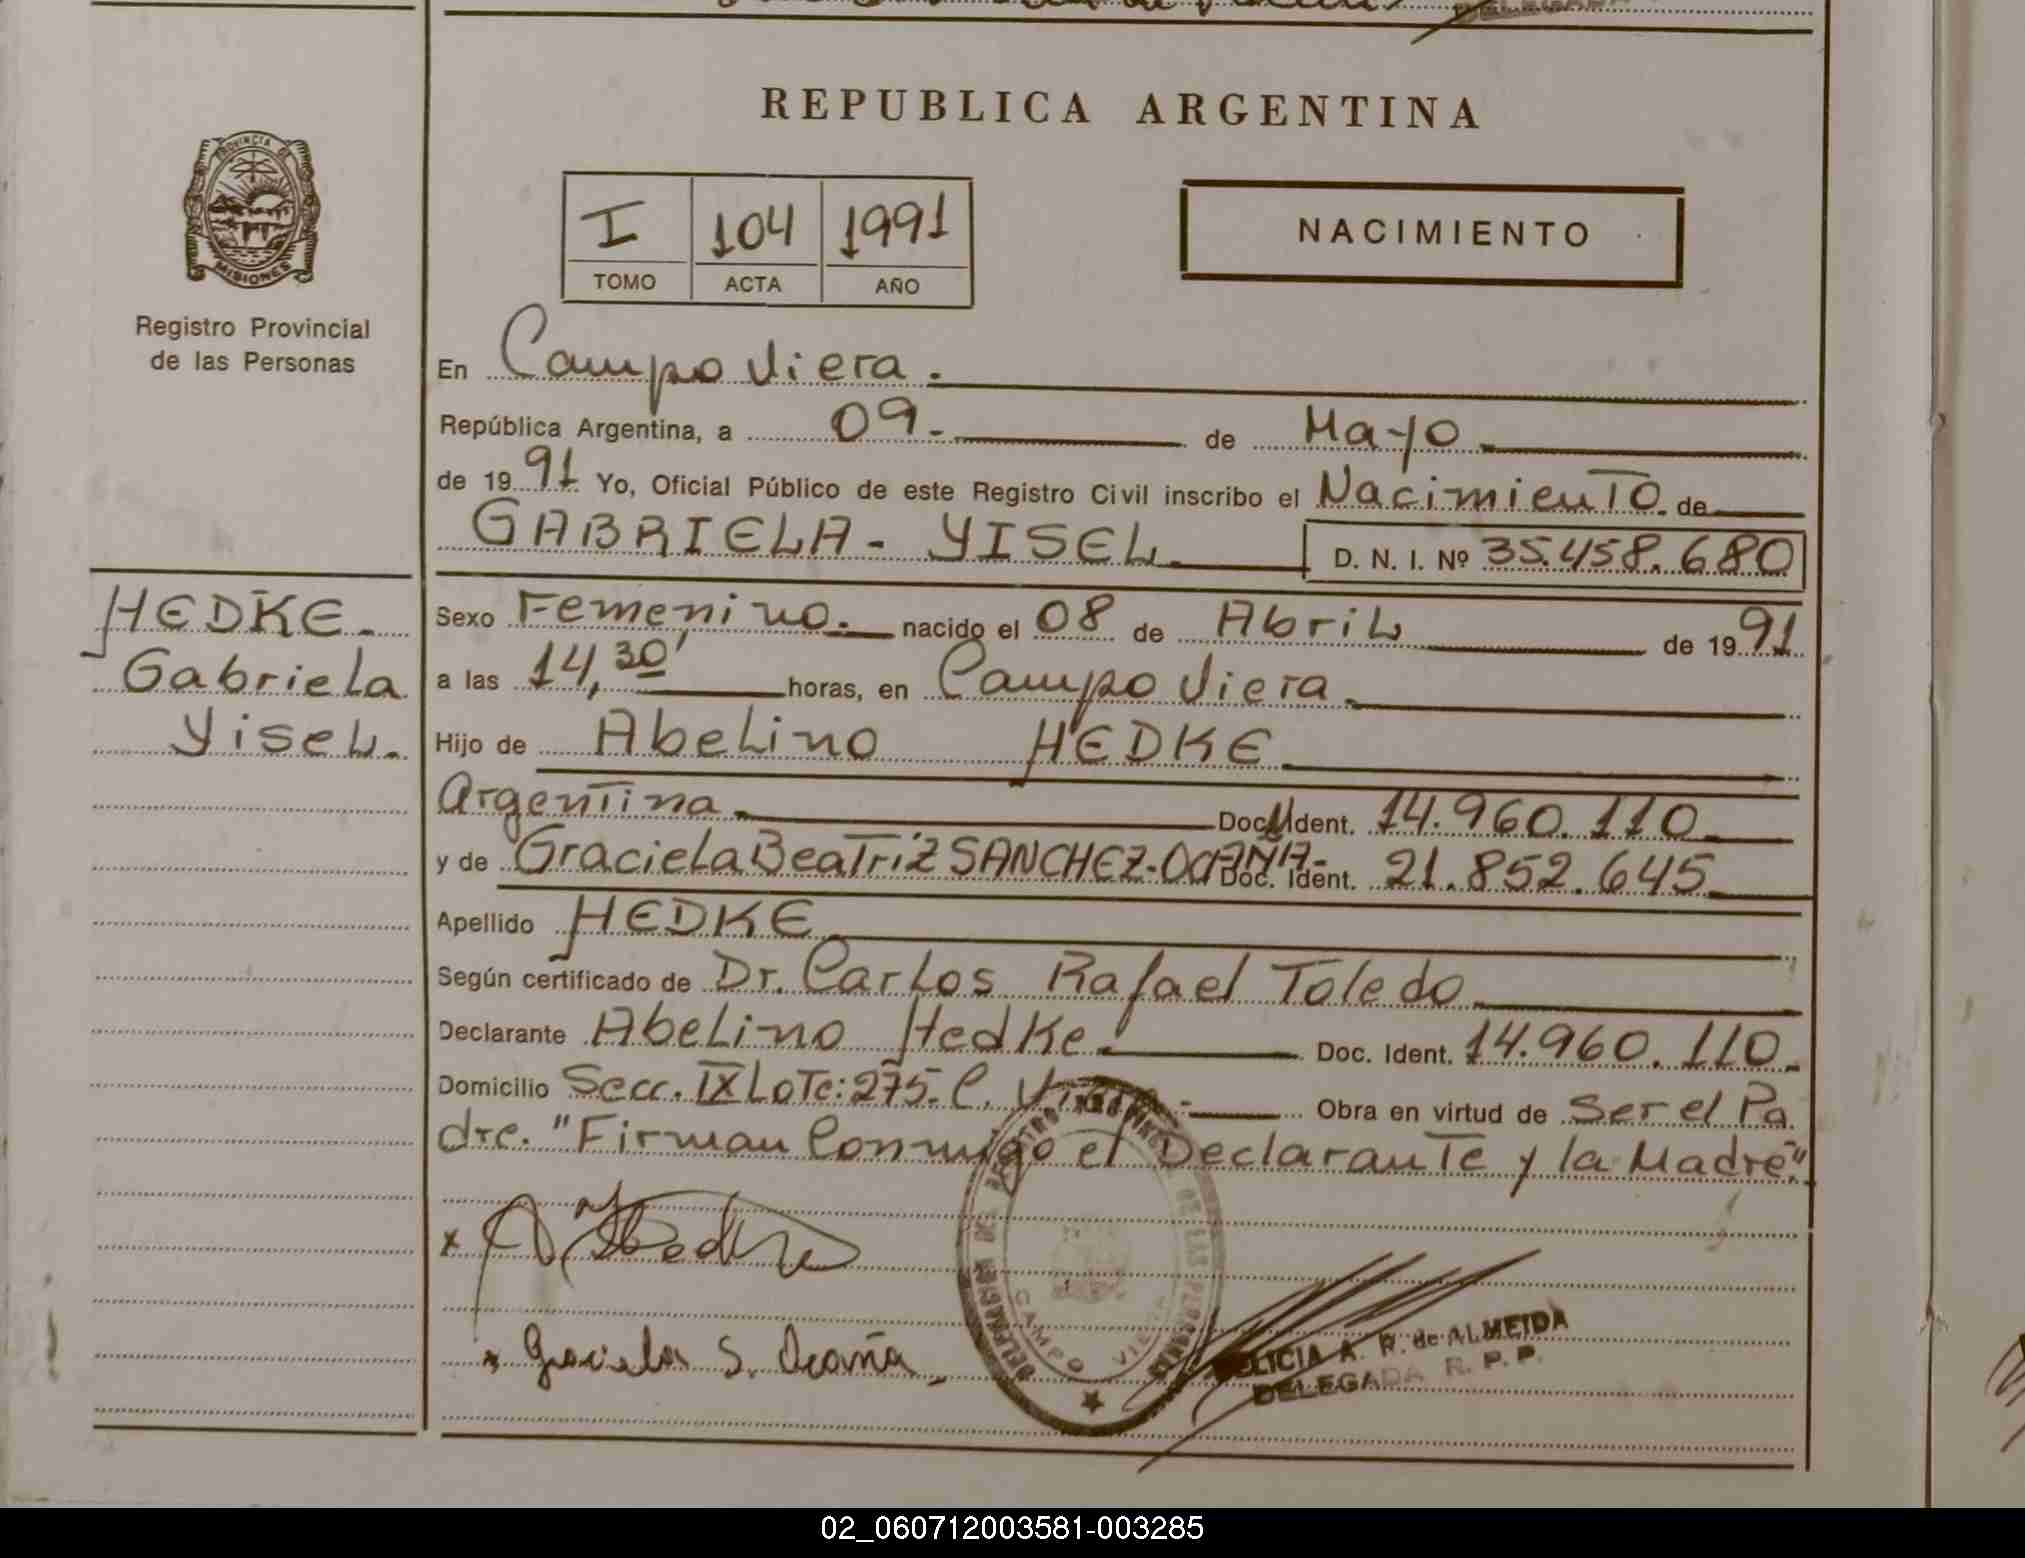 DELEGADA
REPUBLICA ARGENTINA
PROVINCIA DE
MISIONES
Registro Provincial
de las Personas
I 104 1991
TOMO ACTA AÑO
NACIMIENTO
En Campo Viera.
República Argentina, a 09. de Mayo
de 1991 Yo, Oficial Público de este Registro Civil inscribo el Nacimiento. de
GABRIELA - YISEL D. N. I. Nº 35.458.680
HEDKE.
Gabriela
Yisel.
Sexo Femenino. nacido el 08 de Abril de 1991
a las 14,30' horas, en Campo Viera
Hijo de Abelino HEDKE
Argentina Doc. Ident. 14.960.110
y de Graciela Beatriz SANCHEZ-OCAÑA- Doc. Ident. 21.852.645
Apellido HEDKE
Según certificado de Dr. Carlos Rafael Toledo
Declarante Abelino Hedke Doc. Ident. 14.960.110
Domicilio Secc. IX Lote: 275. C. Viera. Obra en virtud de Ser el Pa
dre. "Firman Conmigo el Declarante y la Madre".
x A Hedke
x Graciela S. Ocaña
DELEGACION DEL REGISTRO PROVINCIAL DE LAS PERSONAS
CAMPO VIERA
FELICIA A. R. de ALMEIDA
DELEGADA R. P. P.
02_060712003581-003285